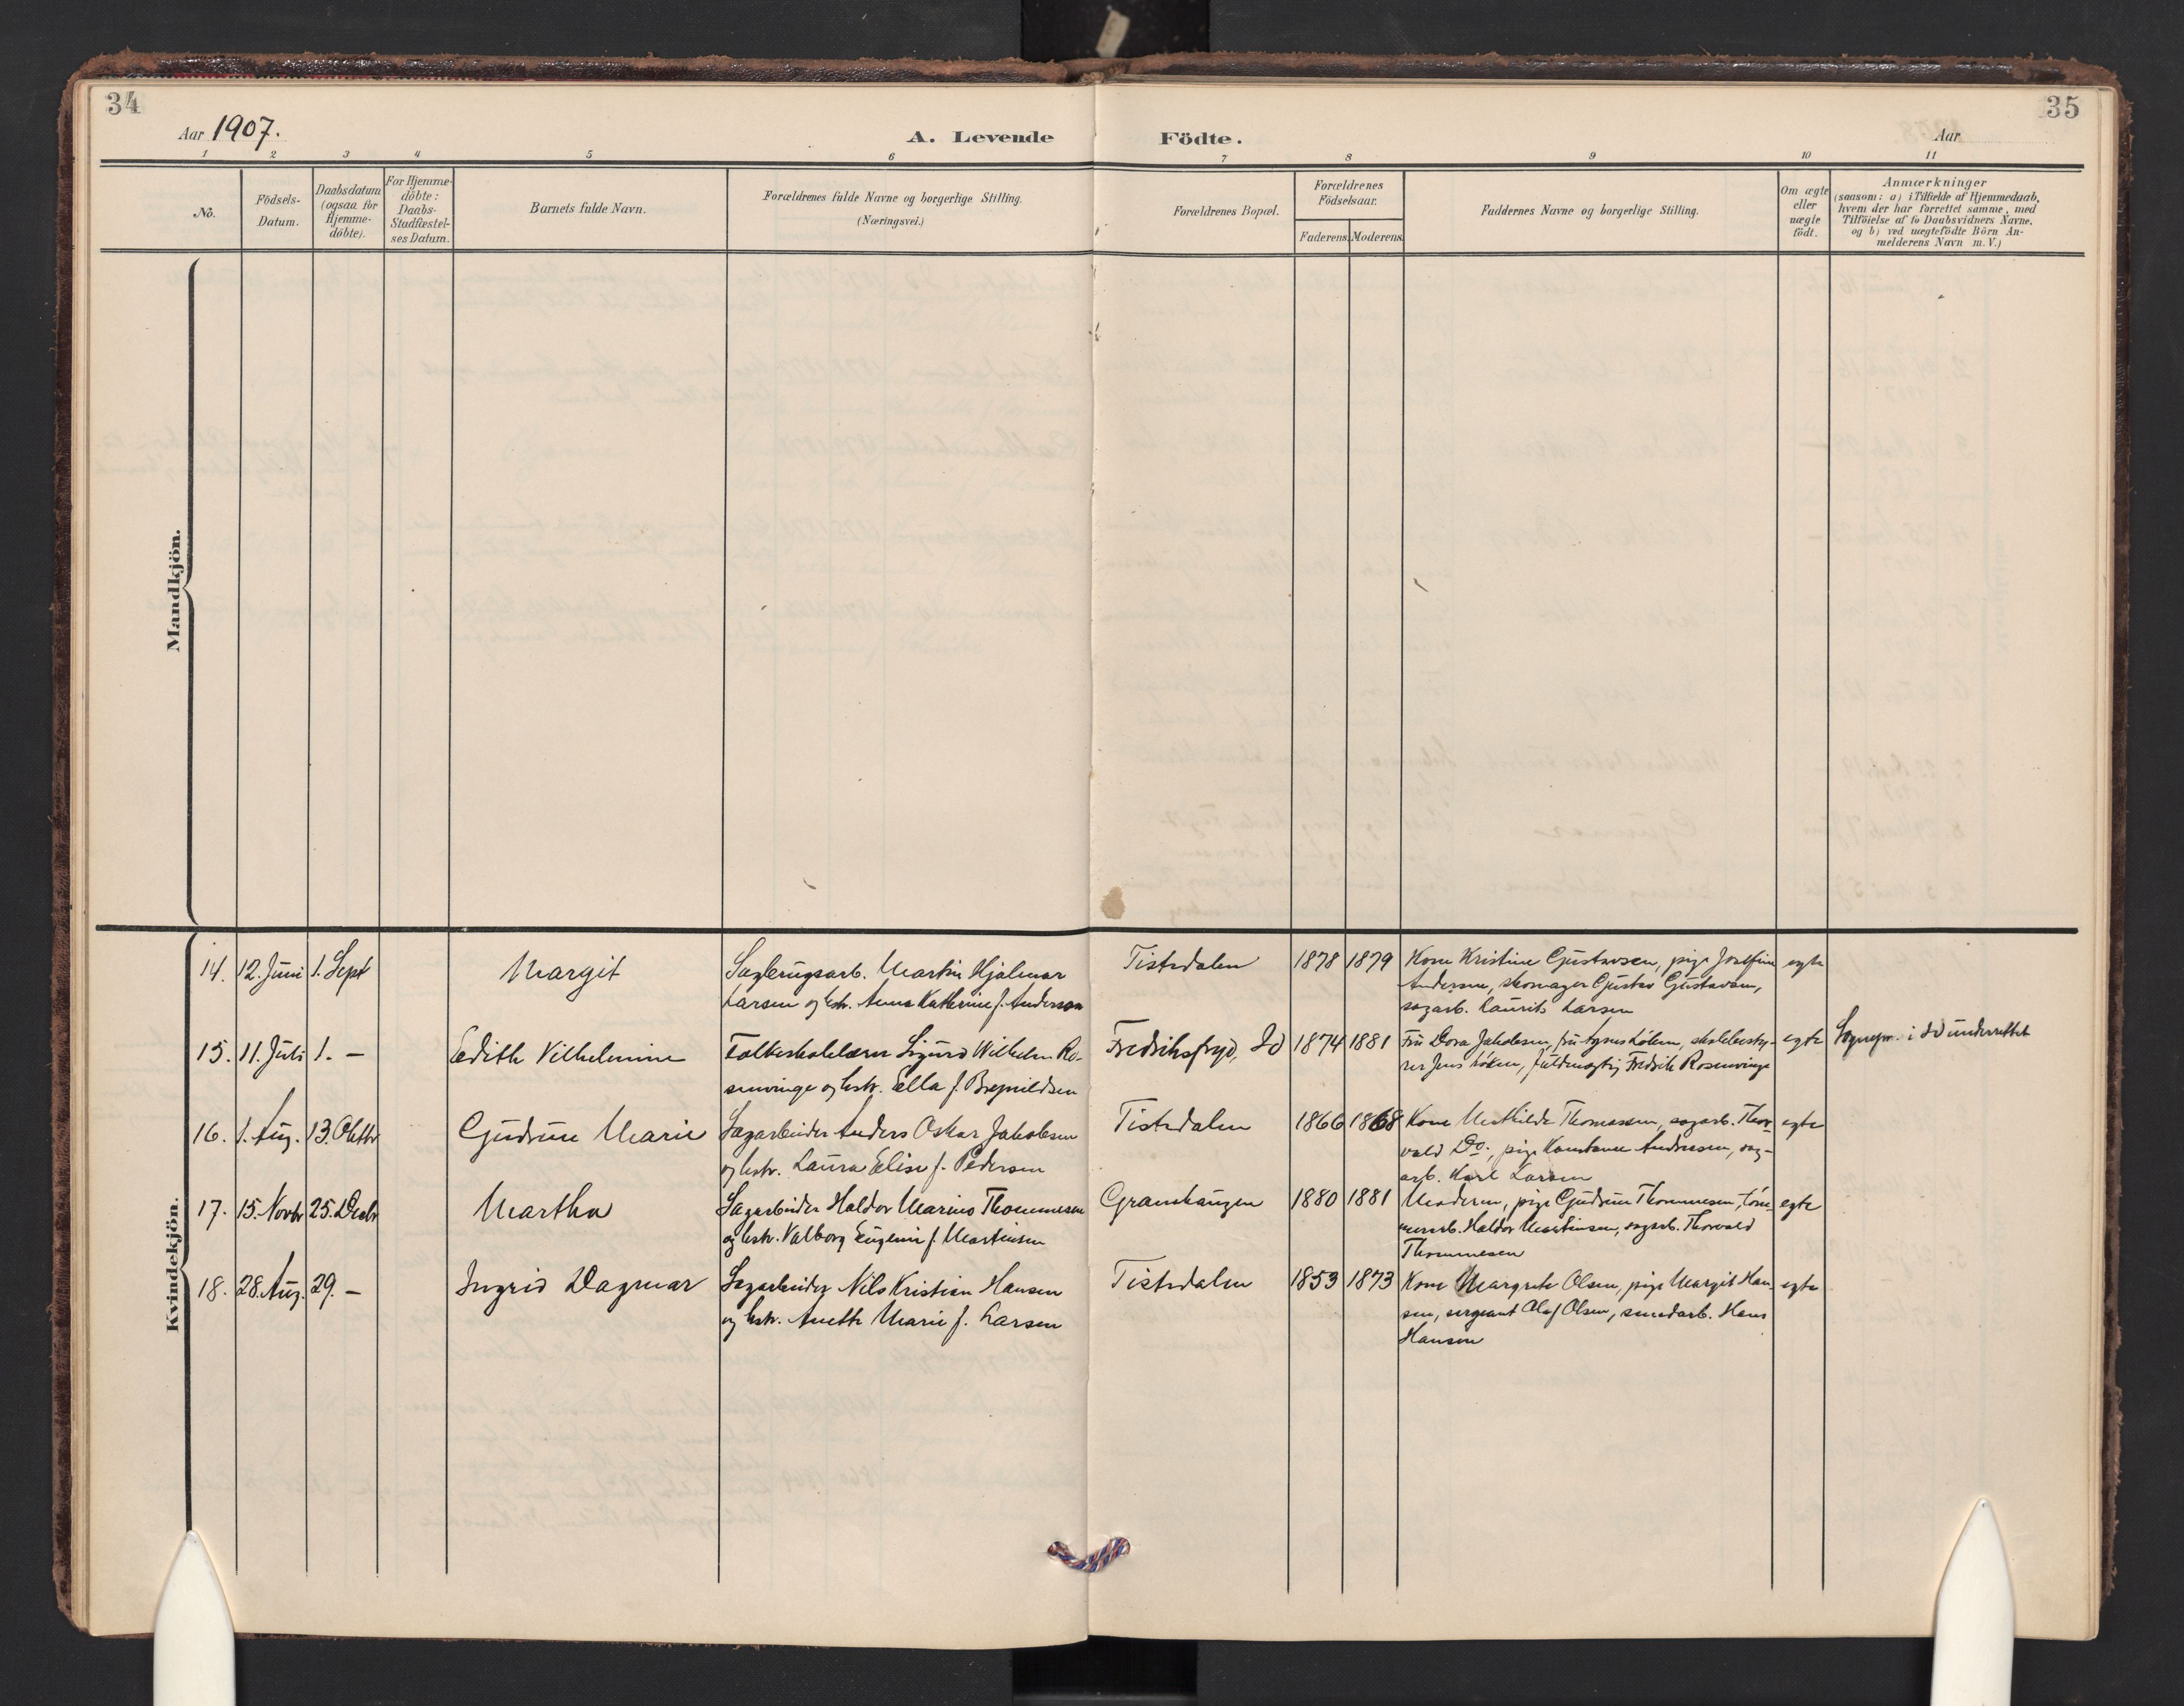 34
35
Aar 1907.
A. Levende Födte.
Aar
1 2 3 4 5 6 7 8 9 10 11
No.
Födsels-
Datum.
Daabsdatum
(ogsaa for
Hjemme-
döbte).
For Hjemme-
döbte:
Daabs-
Stadfæstel-
ses Datum.
Barnets fulde Navn.
Forældrenes fulde Navne og borgerlige Stilling.
(Næringsvei.)
Forældrenes Bopæl.
Forældrenes
Födselsaar.
Faderens. Moderens.
Faddernes Navne og borgerlige Stilling.
Om ægte
eller
uægte
födt.
Anmærkninger
(saasom: a) i Tilfælde af Hjemmedaab,
hvem der har forrettet samme, med
Tilföielse af to Daabsvidners Navne.
og b) ved uægtefödte Börn An-
melderens Navn m. V.)
Mandkjön.
Kvindekjön.
14. 12. Juni 1. Sept Margit
Sagbrugsarb. Martin Hjalmar
Larsen og hstr. Anna Kathrine f. Andersen
Tistedalen 1878 1879
Kone Kristine Gustavsen, pige Josefine
Andersen, skomager Gustav Gustavsen,
sagarb. Laurits Larsen
egte
15. 11. Juli 1. — Edith Vilhelmine
Folkeskolelærer Sigurd Wilhelm Ro-
senvinge og hstr. Ella f. Brynildsen
Fredriksfryd, Id 1874 1881
Fru Dora Jakobsen, fru Agnes Löken, skolebesty-
rer Jens Löken, fuldmægtig Fredrik Rosenvinge
egte
Sognepr. i Id underrettet
16. 1. Aug. 13. Oktbr Gudrun Marie
Sagarbeider Anders Oskar Jakobsen
og hstr. Laura Elise f. Pedersen
Tistedalen 1866 1868
Kone Mathilde Thomassen, sagarb. Thor-
vald Do., pige Konstanse Andresen, sag-
arb. Karl Larsen
egte
17. 15. Novbr 25. Decbr Martha
Sagarbeider Haldor Marino Thommesen
og hstr. Valborg Eugenie f. Martinsen
Grønhaugen 1880 1881
Moderen, pige Gudrun Thommesen, töm-
merarb. Haldor Martinsen, sagarb. Thorvald
Thommesen
egte
18. 28. Aug. 29. — Ingrid Dagmar
Sagarbeider Nils Kristian Hansen
og hstr. Anette Marie f. Larsen
Tistedalen 1853 1873
Kone Margrete Olsen, pige Margit Han-
sen, sergeant Olaf Olsen, smedarb. Hans
Hansen
egte